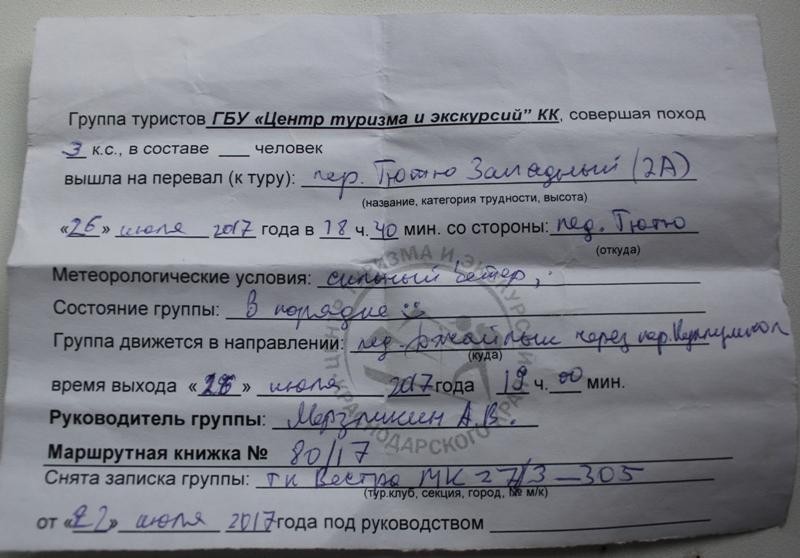 Группа туристов ГБУ «Центр туризма и экскурсий” КК, совершая поход
3 к.с., в составе ___ человек
вышла на перевал (к туру): пер. Тютю Западный (2А)
(название, категория трудности, высота)
«26» июля 2017 года в 18 ч. 40 мин. со стороны: лед. Тютю
(откуда)
Метеорологические условия: сильный ветер,
Состояние группы: в порядке :)
Группа движется в направлении: лед. Джайлык через пер.
(куда)
время выхода «26» июля 2017 года 19 ч. 00 мин.
Руководитель группы: А.В.
Маршрутная книжка № 80/17
Снята записка группы: тк Вестра МК 27/3-305
(тур.клуб, секция, город, № м/к)
от «22» июля 2017 года под руководством
ЦЕНТР ТУРИЗМА И ЭКСКУРСИЙ
КРАСНОДАРСКОГО КРАЯ